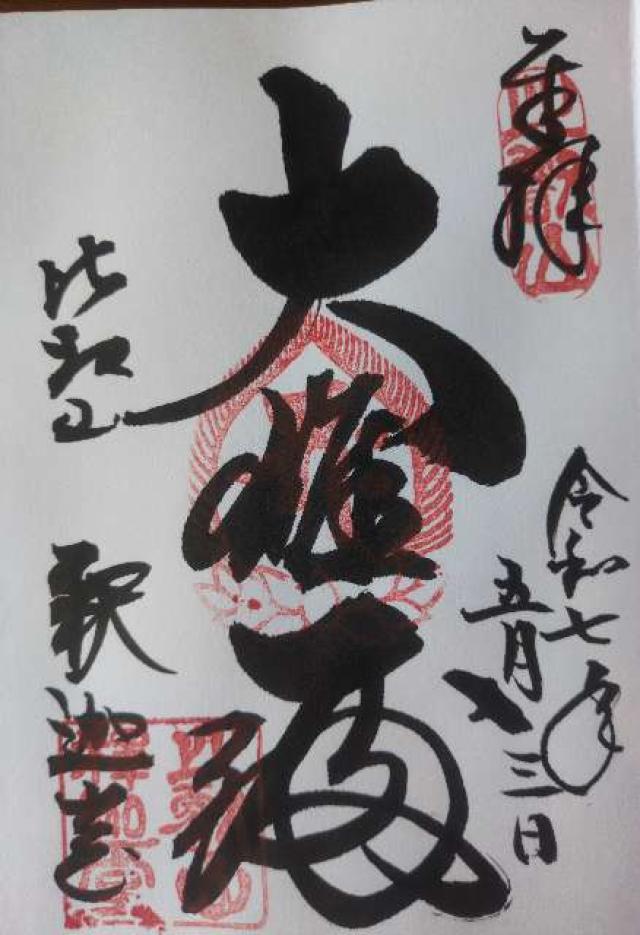 奉拝
令和七年
五月十三日
大雄殿
比叡山
釈迦堂